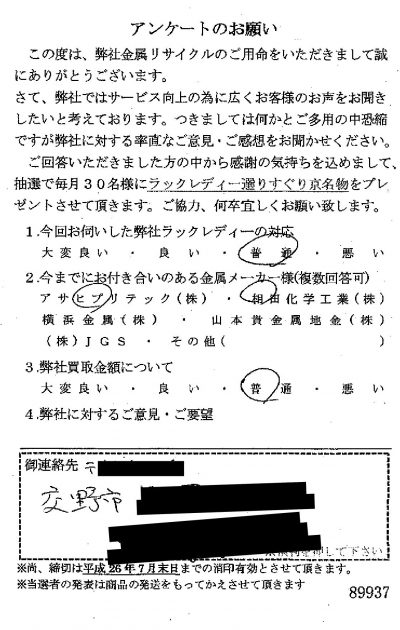 アンケートのお願い
この度は、弊社金属リサイクルのご用命をいただきまして誠
にありがとうございます。
さて、弊社ではサービス向上の為に広くお客様のお声をお聞き
したいと考えております。つきましては何かとご多用の中恐縮
ですが弊社に対する率直なご意見・ご感想をお聞かせください。
ご回答いただきました方の中から感謝の気持ちを込めまして、
抽選で毎月30名様にラックレディー選りすぐり京名物をプレ
ゼントさせて頂きます。ご協力、何卒宜しくお願い致します。
1.今回お伺いした弊社ラックレディーの対応
大変良い ・ 良い ・ 普通 ・ 悪い
2.今までにお付き合いのある金属メーカー様(複数回答可)
アサヒプリテック(株) ・ 相田化学工業(株)
横浜金属(株) ・ 山本貴金属地金(株)
(株)JGS ・ その他( )
3.弊社買取金額について
大変良い ・ 良い ・ 普通 ・ 悪い
4.弊社に対するご意見・ご要望
御連絡先 〒
交野市
を押して下さい
※尚、締切は平成26年7月末日までの消印有効とさせて頂きます。
※当選者の発表は商品の発送をもってかえさせて頂きます
89937